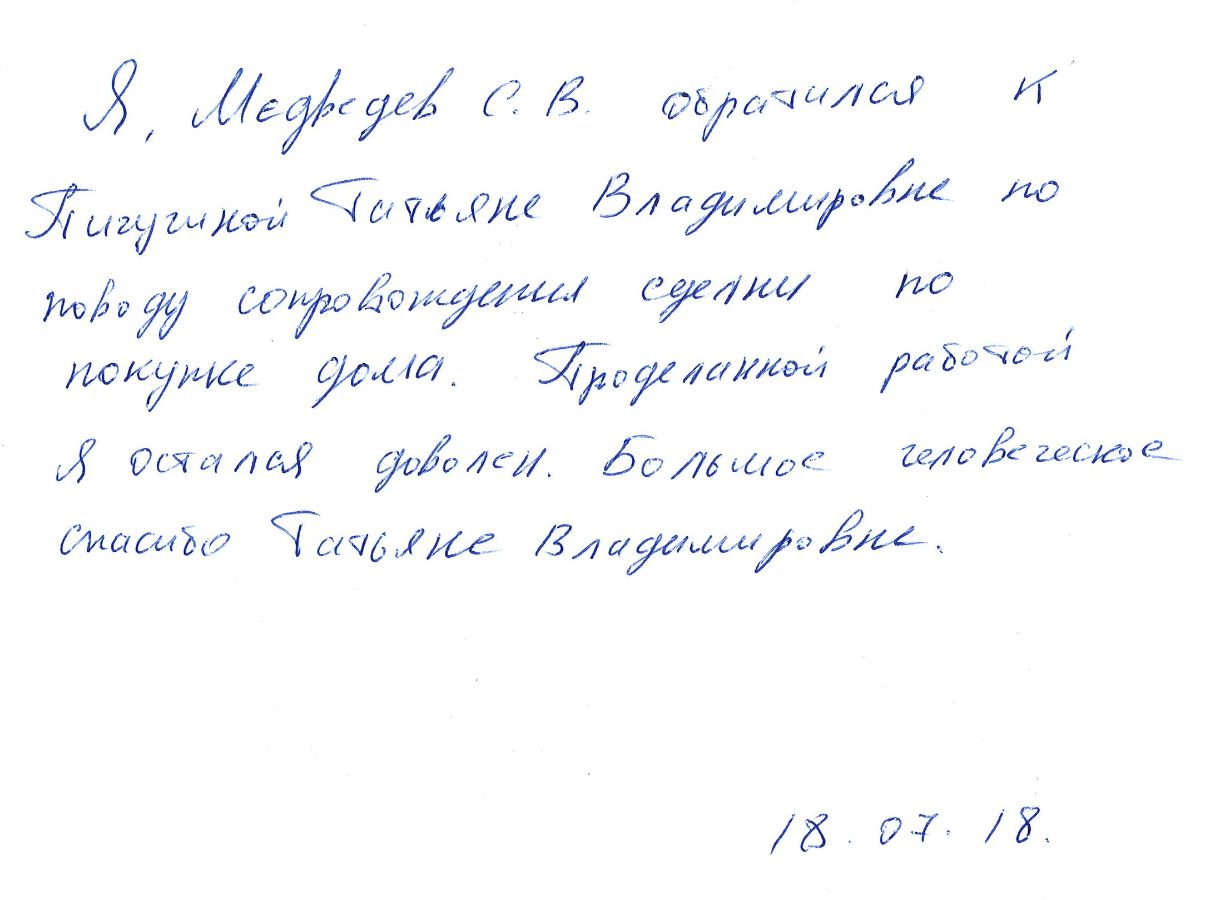 Я, Медведев С. В. обратился к
Пичугиной Татьяне Владимировне по
поводу сопровождения сделки по
покупке дома. Проделанной работой
я остался доволен. Большое человеческое
спасибо Татьяне Владимировне.
18.07.18.